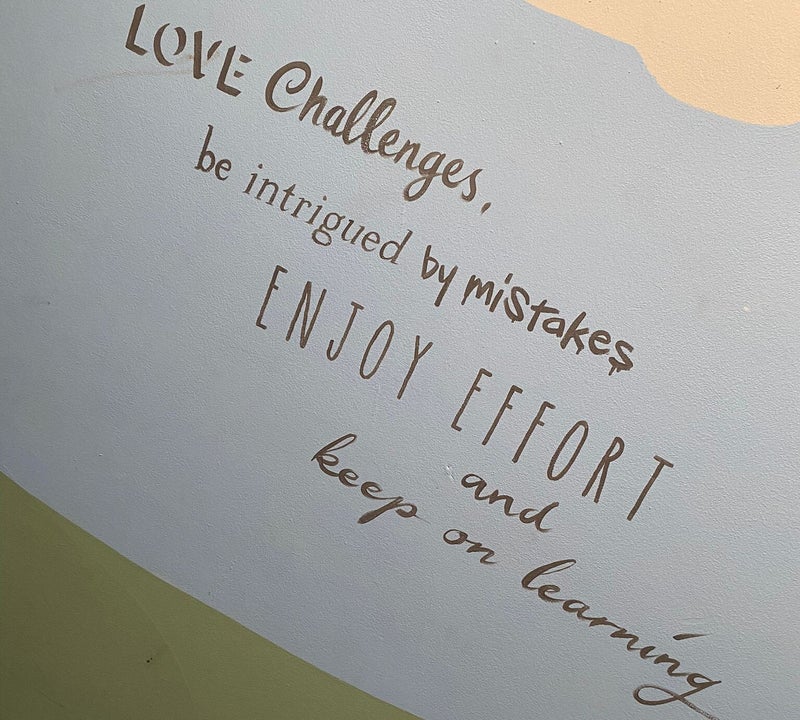 LOVE Challenges,
be intrigued by mistakes
ENJOY EFFORT
and
keep on learning